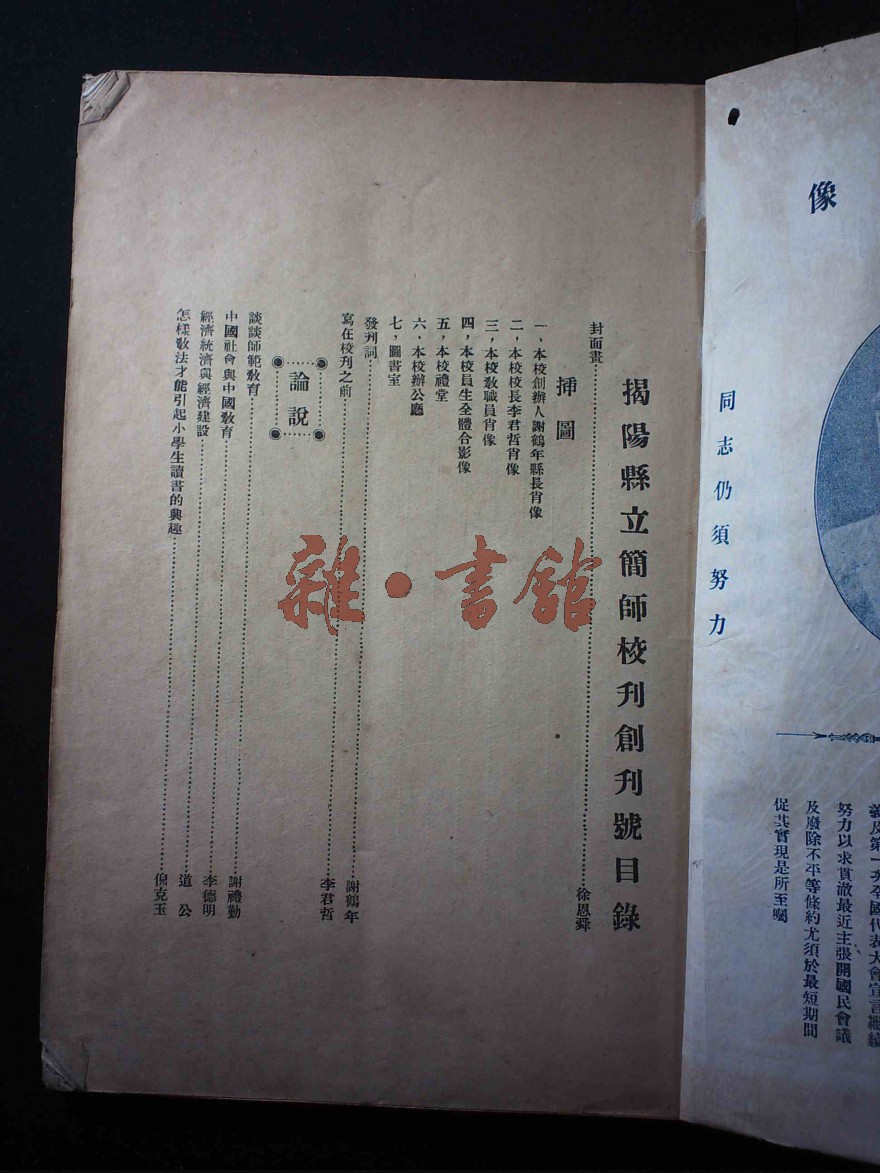 像
同志仍須努力
義及第一次全國代表大會宣言繼續
努力以求貫澈最近主張開國民會議
及廢除不平等條約尤須於最短期間
促其實現是所至囑
揭陽縣立簡師校刋創刋號目錄
封面畫……徐恩舜
揷圖
一、本校創辦人謝鶴年縣長肖像
二，本校校長李君哲肖像
三，本校敎職員肖像
四，本校員生全體合影像
五，本校禮堂
六，本校辦公廳
七，圖書室
發刋詞……謝鶴年
寫在校刋之前……李君哲
論說
談談師範敎育……謝禮勤
中國社會與中國敎育……李德明
經濟統濟與經濟建設……道 公
怎樣敎法才能引起小學生讀書的興趣……倪克玉
雜·書館